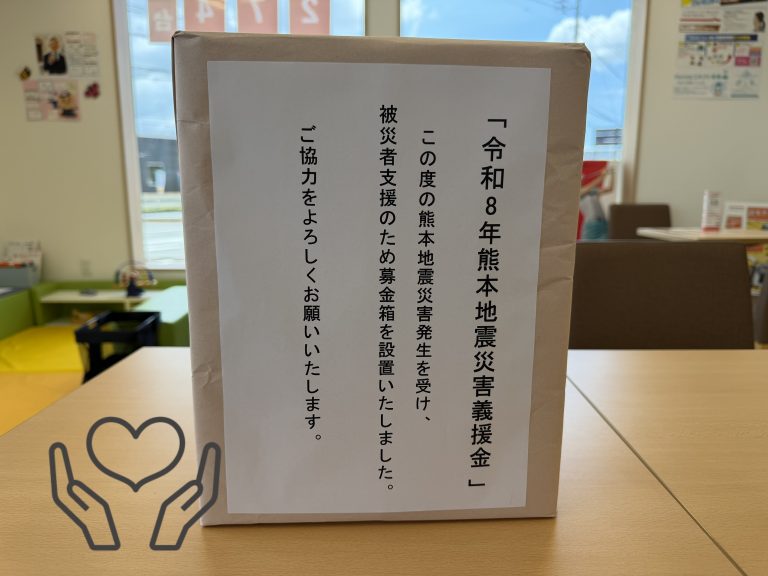 「令和8年熊本地震災害義援金」
この度の熊本地震災害発生を受け、
被災者支援のため募金箱を設置いたしました。
ご協力をよろしくお願いいたします。
274台